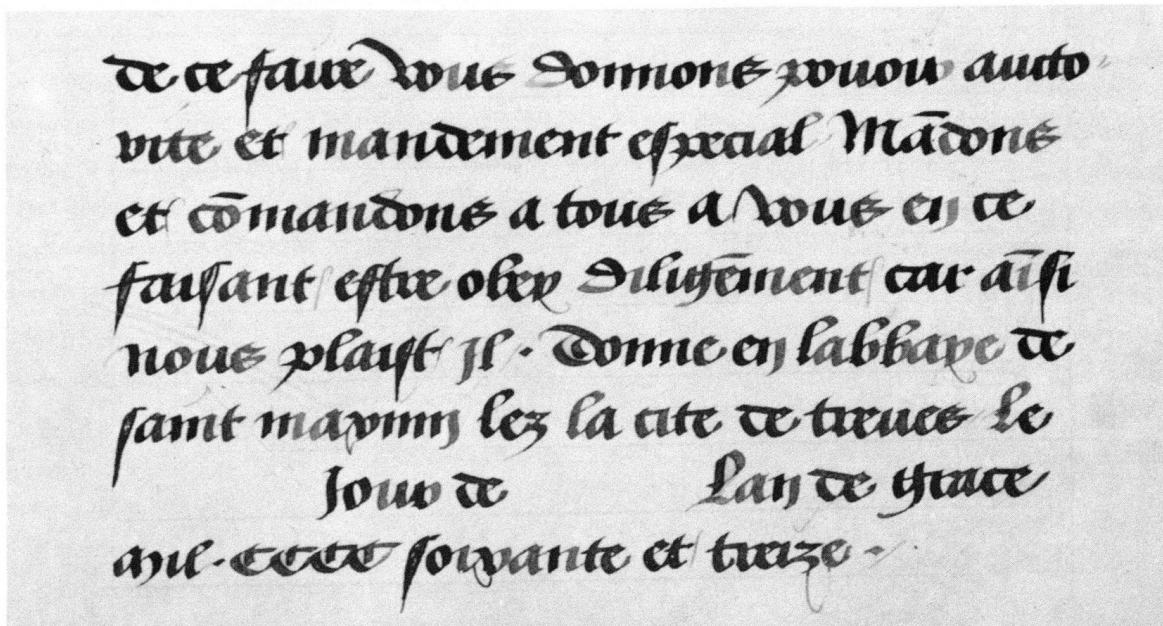 de ce faire vous donnons pouoir aucto
rite et mandement especial Mādons
et cōmandons a tous a vous en ce
faisant estre obey diligēment car aīsi
nous plaist Jl · Donne en labbaye de
saint maximin lez la cite de treues Le
Jour de Lan de grace
mil · CCCC soixante et treize ·